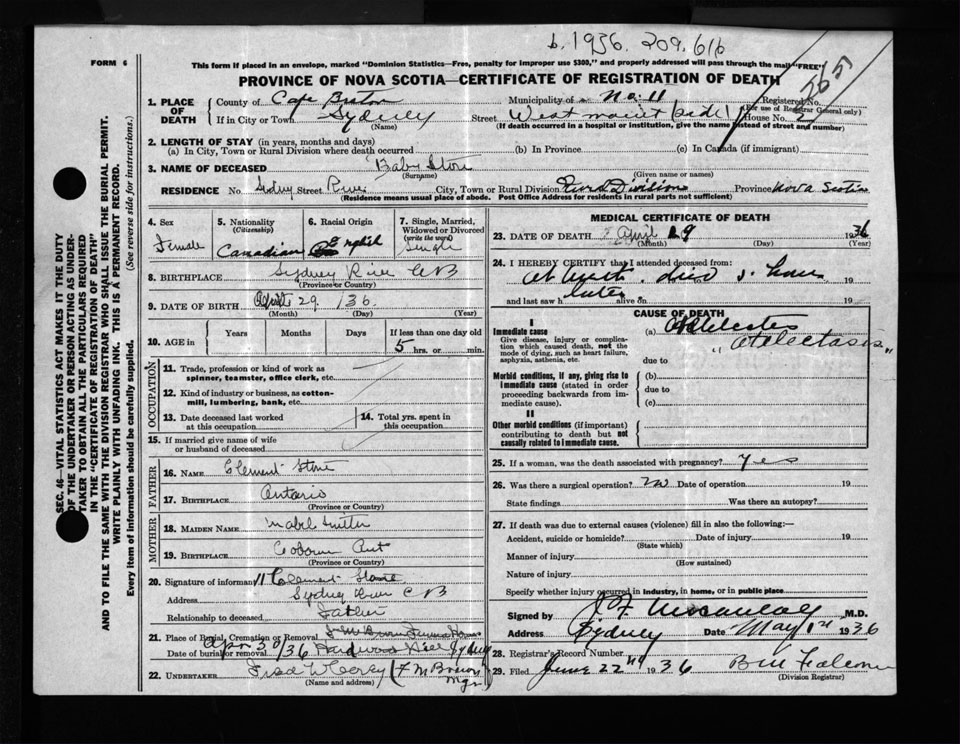 b. 1936. 209. 616
FORM 6
This form if placed in an envelope, marked "Dominion Statistics—Free, penalty for improper use $300," and properly addressed will pass through the mail "FREE"
PROVINCE OF NOVA SCOTIA—CERTIFICATE OF REGISTRATION OF DEATH
SEC. 46—VITAL STATISTICS ACT MAKES IT THE DUTY
OF THE UNDERTAKER OR PERSON ACTING AS UNDER-
TAKER TO OBTAIN ALL THE PARTICULARS REQUIRED
IN THE "CERTIFICATE OF REGISTRATION OF DEATH"
AND TO FILE THE SAME WITH THE DIVISION REGISTRAR WHO SHALL ISSUE THE BURIAL PERMIT.
WRITE PLAINLY WITH UNFADING INK. THIS IS A PERMANENT RECORD.
Every item of information should be carefully supplied. (See reverse side for instructions.)
1. PLACE OF DEATH
County of Cape Breton Municipality of No. 11 Registered No.
(For use of Registrar General only)
If in City or Town Sydney Street West House No.
(Name) (If death occurred in a hospital or institution, give the name instead of street and number)
2. LENGTH OF STAY (in years, months and days)
(a) In City, Town or Rural Division where death occurred (b) In Province (c) In Canada (if immigrant)
3. NAME OF DECEASED Baby Stone
(Surname) (Given name or names)
RESIDENCE No. Sydney Street River City, Town or Rural Division Division Province Nova Scotia
(Residence means usual place of abode. Post Office Address for residents in rural parts not sufficient)
4. Sex Female
5. Nationality (Citizenship) Canadian
6. Racial Origin English
7. Single, Married, Widowed or Divorced (write the word) Single
8. BIRTHPLACE Sydney River CB
(Province or Country)
9. DATE OF BIRTH April 29 /36
(Month) (Day) (Year)
10. AGE in Years Months Days If less than one day old
5 hrs. or min.
OCCUPATION
11. Trade, profession or kind of work as
spinner, teamster, office clerk, etc.
12. Kind of industry or business, as cotton-
mill, lumbering, bank, etc.
13. Date deceased last worked
at this occupation
14. Total yrs. spent in
this occupation
15. If married give name of wife
or husband of deceased
FATHER
16. NAME Clement Stone
17. BIRTHPLACE Ontario
(Province or Country)
MOTHER
18. MAIDEN NAME Mabel
19. BIRTHPLACE Ont
(Province or Country)
20. Signature of informant Clement Stone
Address Sydney River C B
Relationship to deceased Father
21. Place of Burial, Cremation or Removal
Date of burial or removal Apr 30/36 Hardwood Hill Sydney
22. UNDERTAKER Fred
(Name and address) Mgr
MEDICAL CERTIFICATE OF DEATH
23. DATE OF DEATH April 29 1936
(Month) (Day) (Year)
24. I HEREBY CERTIFY that I attended deceased from:
at birth. died 5 hours 19
and last saw h later alive on 19
CAUSE OF DEATH
I
Immediate cause
Give disease, injury or complica-
tion which caused death, not the
mode of dying, such as heart failure,
asphyxia, asthenia, etc.
(a)
"Atelectasis"
due to
Morbid conditions, if any, giving rise to
immediate cause (stated in order
proceeding backwards from im-
mediate cause).
(b)
due to
(c)
II
Other morbid conditions (if important)
contributing to death but not
causally related to immediate cause.
25. If a woman, was the death associated with pregnancy? Yes
26. Was there a surgical operation? No Date of operation 19
State findings Was there an autopsy?
27. If death was due to external causes (violence) fill in also the following:—
Accident, suicide or homicide? Date of injury 19
(State which)
Manner of injury
(How sustained)
Nature of injury
Specify whether injury occurred in industry, in home, or in public place
Signed by M.D.
Address Sydney Date May 1st 1936
28. Registrar's Record Number
29. Filed June 22nd 1936
(Division Registrar)